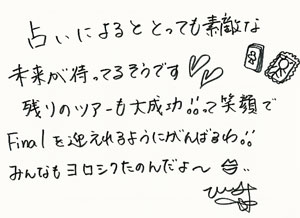 占いによるととっても素敵な
未来が待ってるそうです♡♡
残りのツアーも大成功!!って笑顔で
Finalを迎えれるようにがんばるわ!!
みんなもヨロシクたのんだよ〜